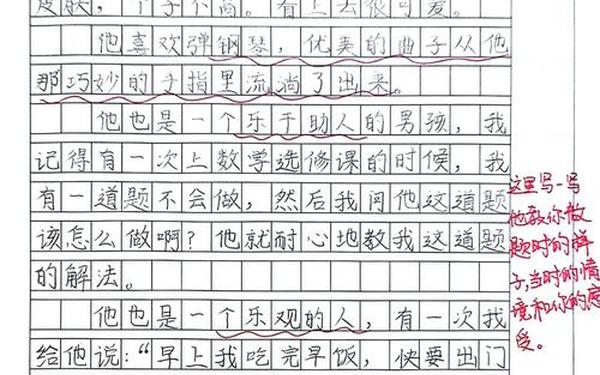 皮肤，个子不高。看上去很可爱。
他喜欢弹钢琴，优美的曲子从他
那巧妙的手指里流淌了出来。
他也是一个乐于助人的男孩，我
记得有一次上数学选修课的时候，我
有一道题不会做，然后我问他这道题
该怎么做啊？他就耐心地教我这道题
的解法。
他也是一个乐观的人，有一次我
给他说：“早上我吃完早饭，快要出门
这里写一写
他教你做
题时的样
子，当时的情
境和你的感
受。